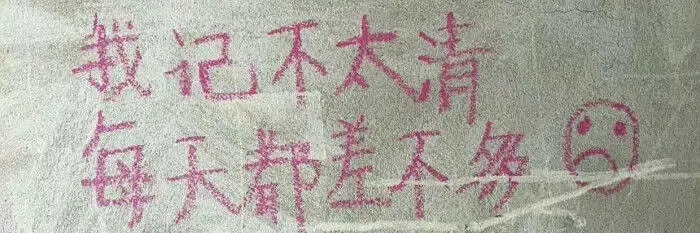 我记不太清
每天都差不多